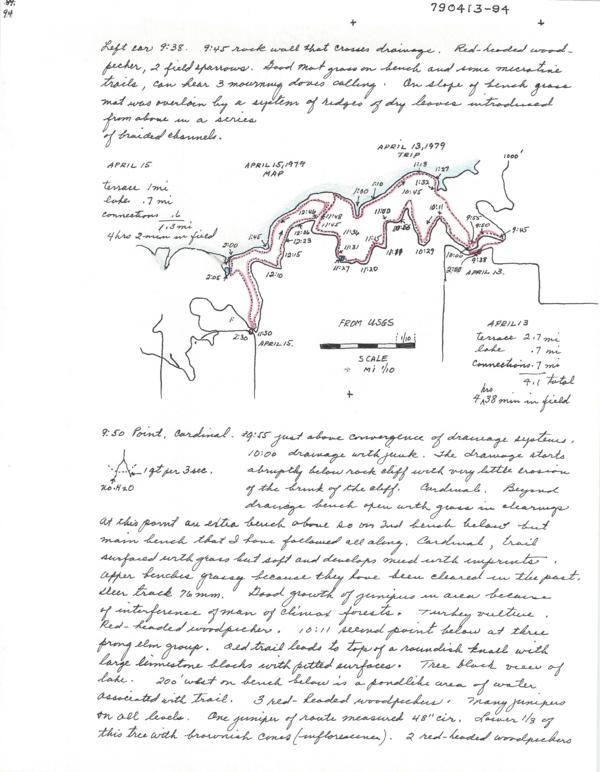 790413-84
Left car 9:38. 9:45 rock wall that crosses drainage. Red-headed wood-
pecker, 2 field sparrows. Good mat grass on bench and some microtine
trails, can hear 3 mourning doves calling. On slope of bench grass
mat was overlain by a system of ridges of dry leaves introduced
from above in a series
of braided channels.
APRIL 15
terrace 1 mi
lake .7 mi
connections .6
4 hrs 2 min in field
APRIL 15, 1979
MAP
APRIL 13, 1979
TRIP
1000'
1:18
1:27
1:32
1:10
1:00
10:45
10:11
9:55
9:50
9:45
10:00
9:38
2:00
APRIL 13.
10:29
11:00
11:45
11:20
11:27
11:31
11:36
11:45
11:48
12:46
12:36
12:23
12:15
12:10
1:45
2:00
2:05
2:30
11:30
APRIL 15.
FROM USGS
1/10
SCALE
MI 1/10
APRIL 13
terrace 2.7 mi
lake .7 mi
connections .7 mi
4.1 total
hrs
4 38 min in field
9:50 Point, Cardinal. 9:55 just above convergence of drainage systems.
10:00 drainage with junk. The drainage starts
abruptly below rock cliff with very little erosion
of the brink of the cliff. Cardinals. Beyond
drainage bench open with grass in clearings
1 qt per 3 sec.
20° H2O
At this point an extra bench above so on 2nd bench below but
main bench that I have followed all along. Cardinal, trail
surfaced with grass but soft and develops mud with imprints.
Upper benches grassy because they have been cleared in the past.
Deer track 76 mm. Good growth of junipus in area because
of interference of man of climax forests. Turkey vulture.
Red-headed woodpecker. 10:11 second point below at three
prong elm group. Old trail leads to top of a roundish knob with
large limestone blocks with pitted surfaces. Tree block view of
lake. 200' west on bench below is a pondlike area of water
associated with trail. 3 red-headed woodpeckers. Many junipus
on all levels. One juniper of route measured 48" cir. Lower 1/3 of
this tree with brownish cones (-inflorescence). 2 red-headed woodpeckers